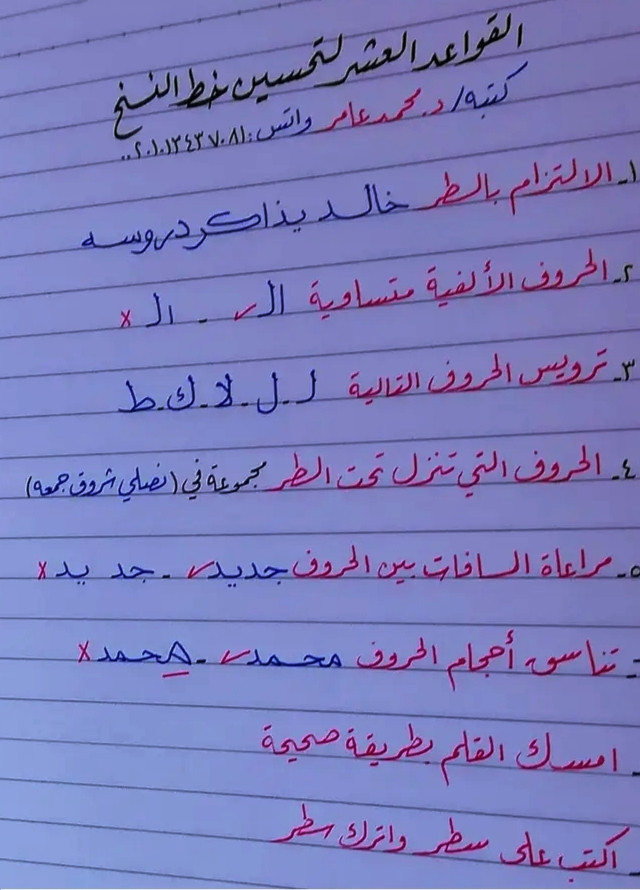 القواعد العشر لتحسين خط النسخ
كتبه/ د. محمد عامر واتس: ٢٠١٠١٣٤٣٧٠٨١..
١- الالتزام بالسطر خالد يذاكر دروسه
٢- الحروف الألفية متساوية ال ✓ - ال ×
٣- ترويس الحروف التالية ا - ل - لا - ك - ط
٤- الحروف التي تنزل تحت السطر مجموعة في (نصلي شروق جمعه)
٥- مراعاة السافات بين الحروف جديد ✓ - جد يد ×
- تناسق أحجام الحروف محمد ✓ - محمد ×
- امسك القلم بطريقة صحيحة
- اكتب على سطر واترك سطر